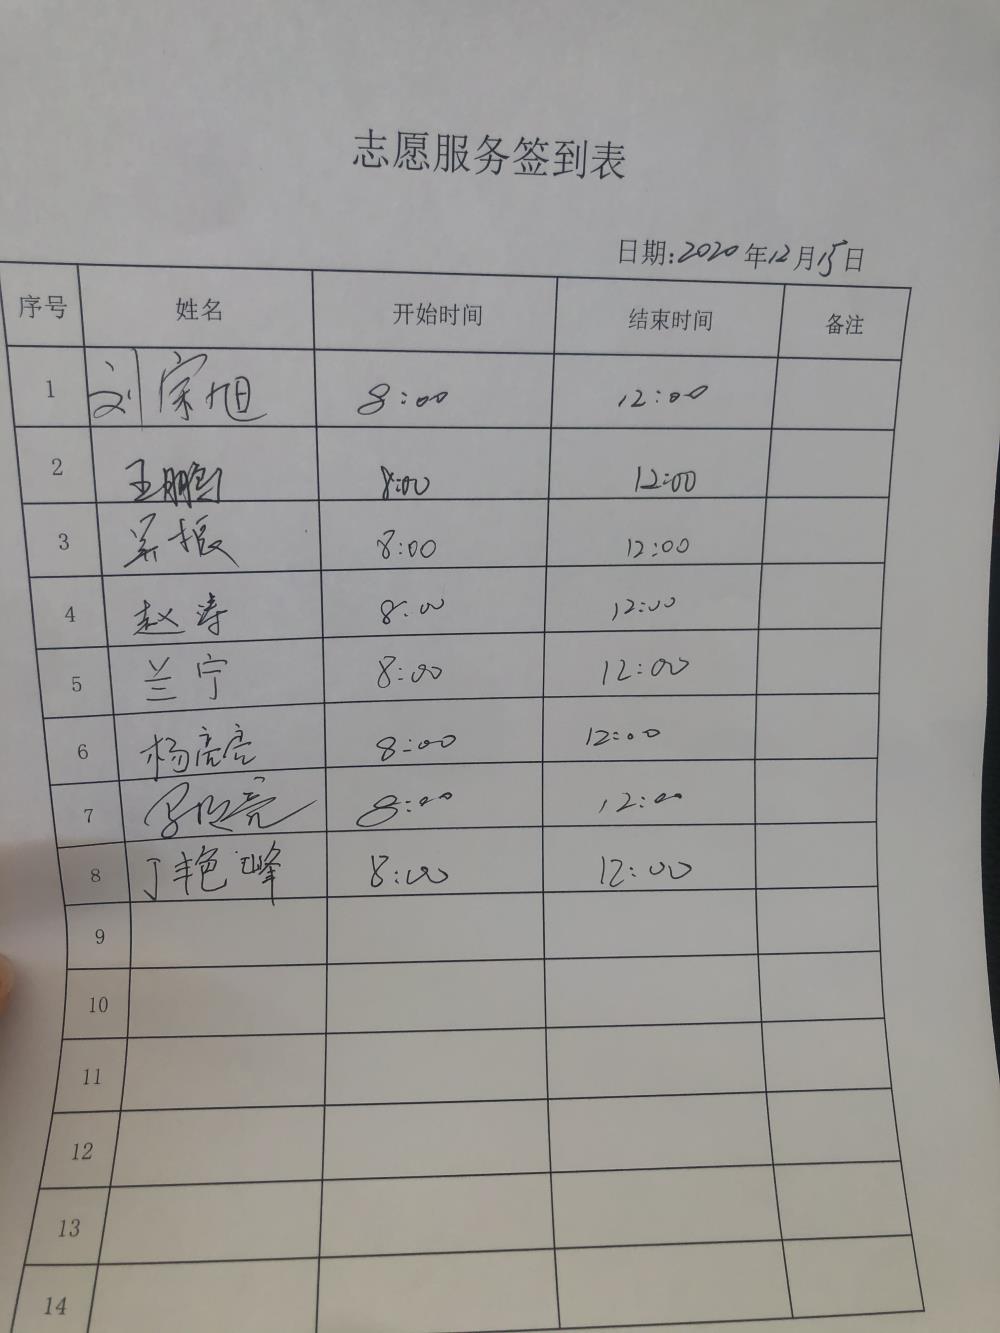 志愿服务签到表
日期:2020年12月15日
序号 姓名 开始时间 结束时间 备注
1 刘宗旭 8:00 12:00
2 王鹏 8:00 12:00
3 吴振 8:00 12:00
4 赵涛 8:00 12:00
5 兰宁 8:00 12:00
6 杨亮亮 8:00 12:00
7 8:00 12:00
8 丁艳峰 8:00 12:00
9
10
11
12
13
14